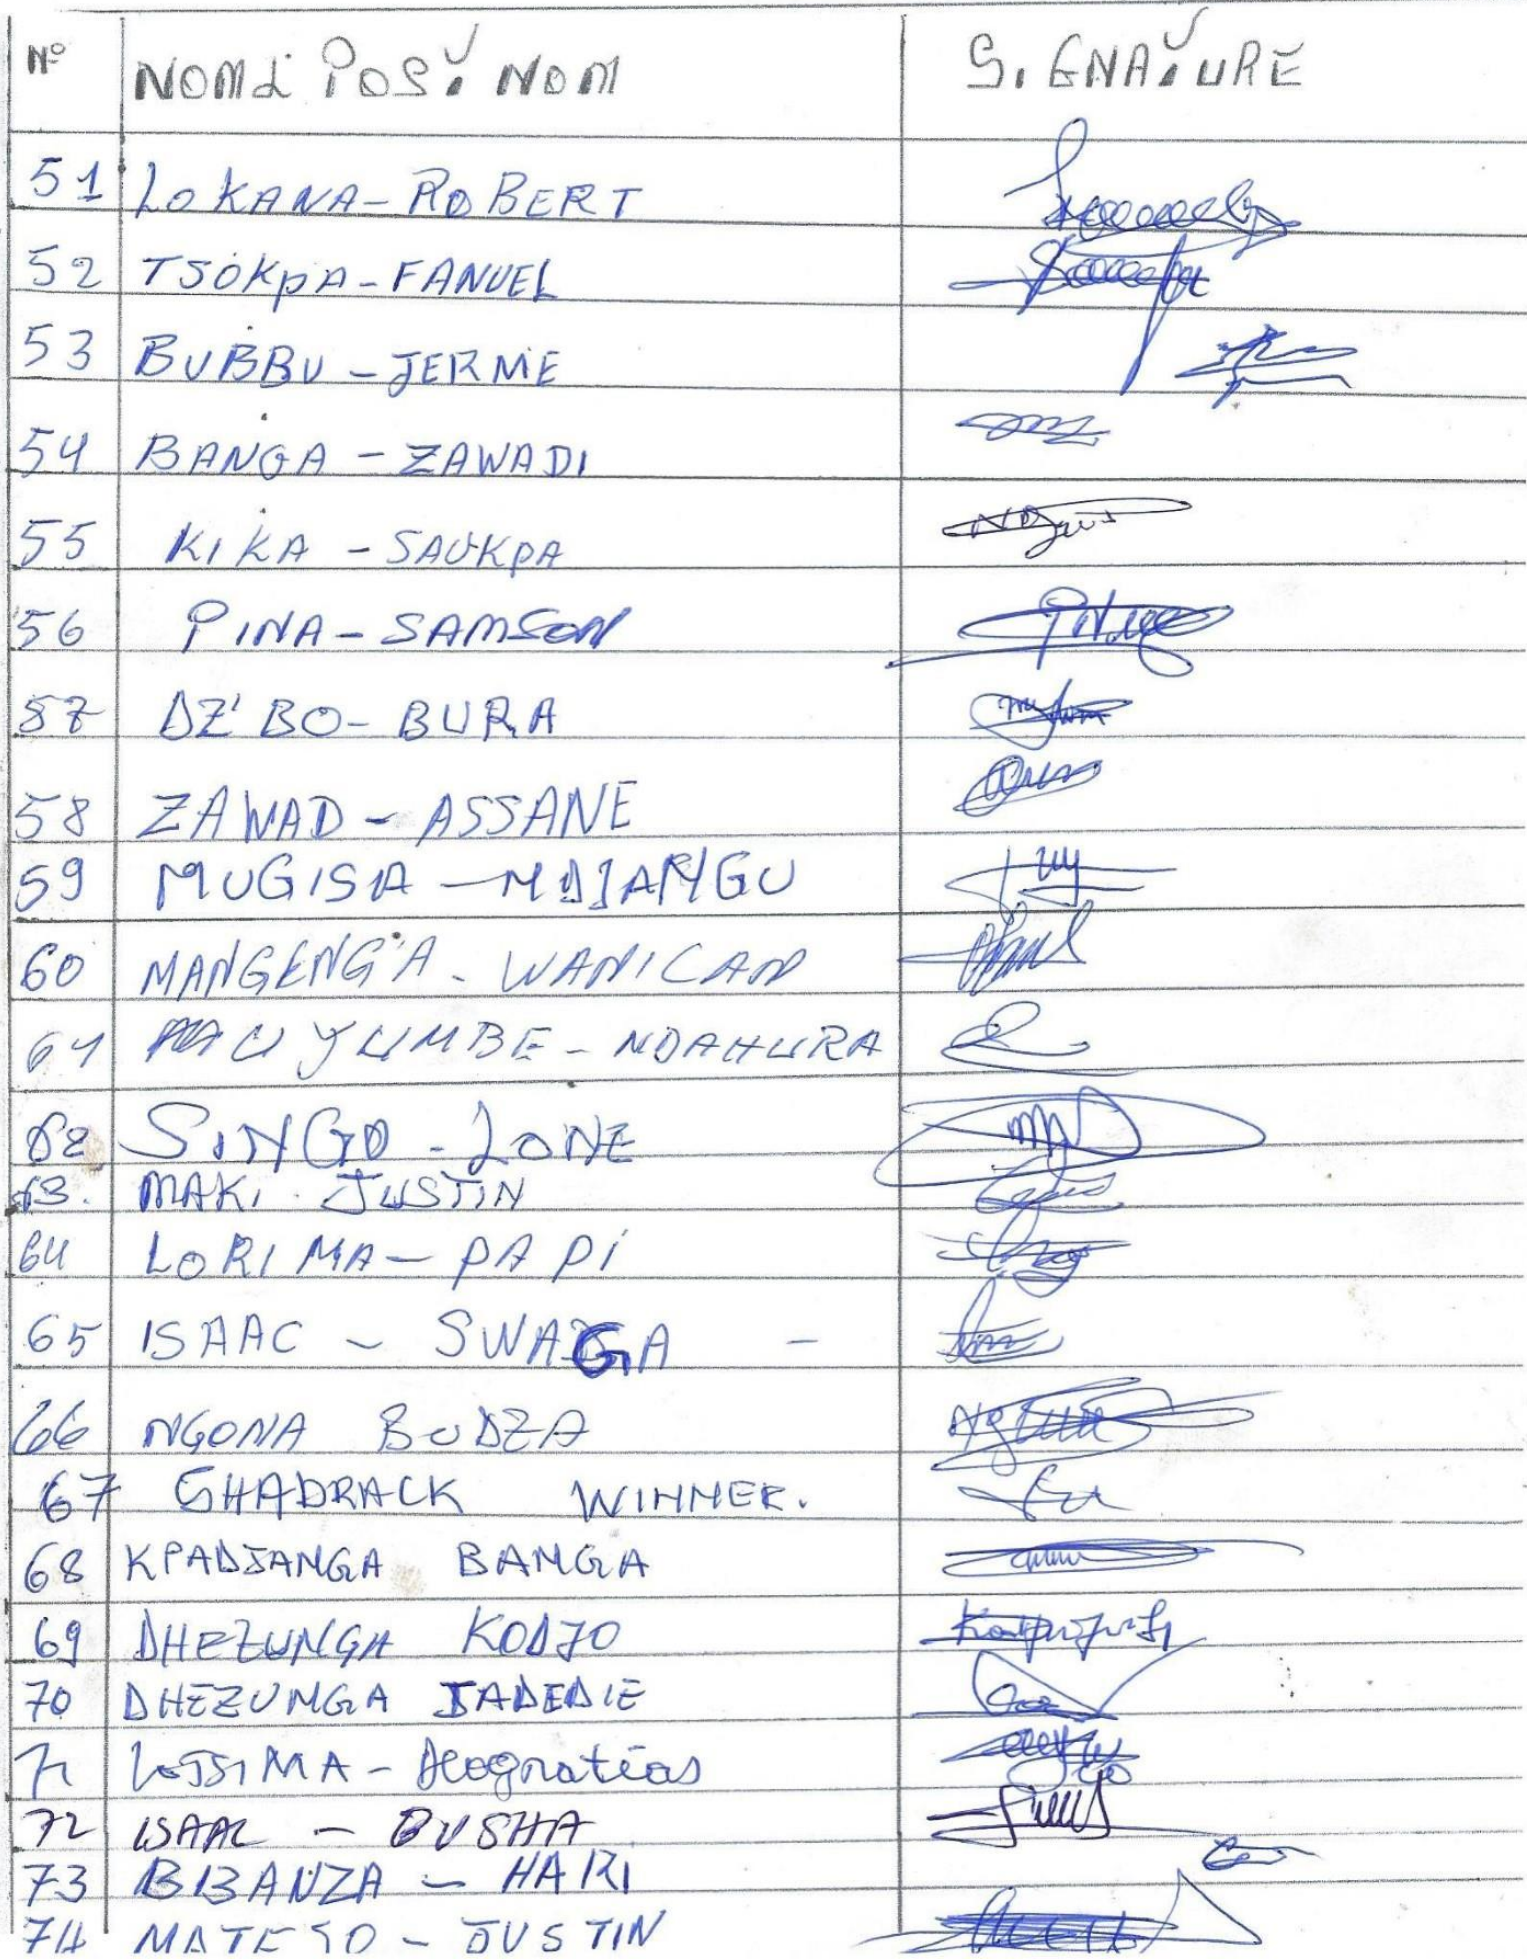 N° NOM & POST NOM SIGNATURE
51 LOKANA-ROBERT
52 TSOKPA-FANUEL
53 BUBBU-JERME
54 BANGA-ZAWADI
55 KIKA-SAUKPA
56 PINA-SAMSON
57 DZ'BO-BURA
58 ZAWAD-ASSANE
59 MUGISA-MAJANGU
60 MANGENG'A-WANICAN
61 MUYUMBE-NDAHURA
62 SINGO-LONE
63. MAKI JUSTIN
64 LORIMA-PAPI
65 ISAAC - SWAGA -
66 NGONA BUDZA
67 SHADRACK WINNER.
68 KPADJANGA BANGA
69 DHEZUNGA KODJO
70 DHEZUNGA JADEDIE
71 LOSSIMA-Deogratias
72 ISAAC - BUSHA
73 BBANZA - HARI
74 MATESO-JUSTIN